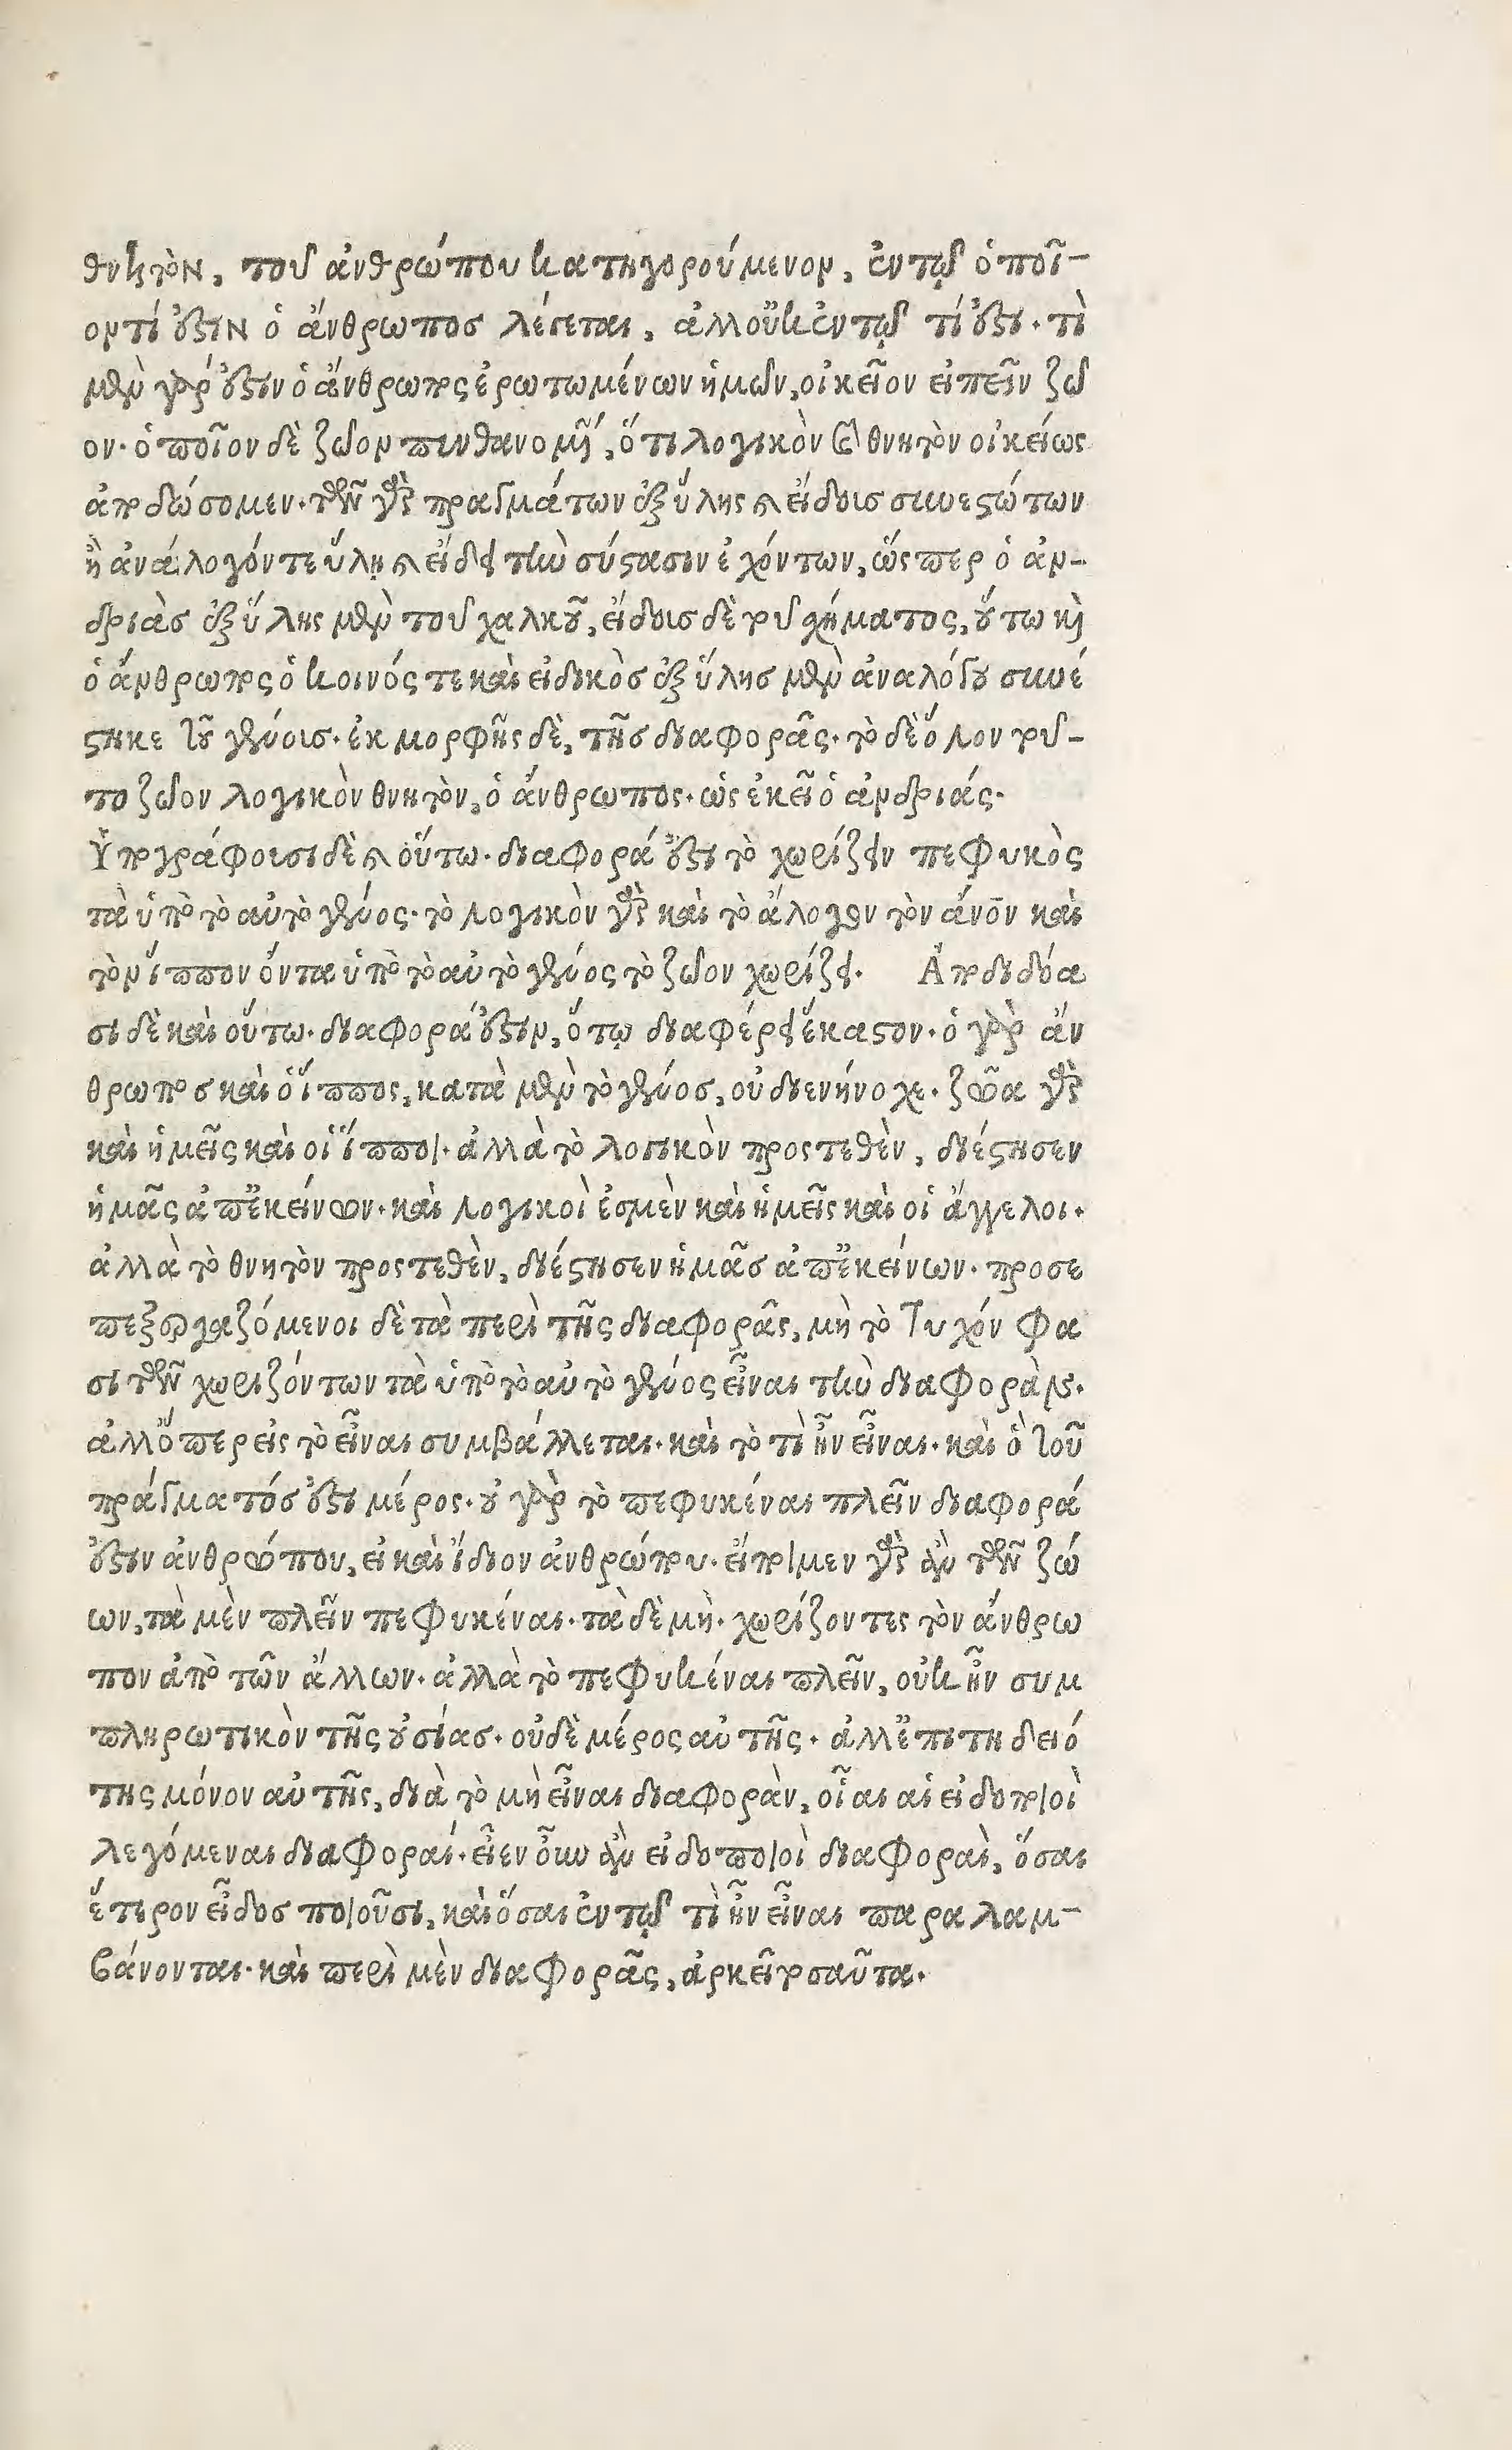 θνητὸν, τοῦ ἀνθρώπου κατηγορούμενον, ἐντῷ ὁποῖ-
οντί ἐστιν ὁ ἄνθρωπος λέγεται, ἀλλοὔκ ἐντῷ τί ἐστι. τὶ
μὲν γάρ ἐστιν ὁ ἄνθρωπος ἐρωτωμένων ἡμῶν, οἰκεῖον εἰπεῖν ζῶ
ον. ὁποῖον δὲ ζῶον πυνθανομένων, ὅτι λογικὸν καὶ θνητὸν οἰκείως
ἀποδώσομεν. τῶν γὰρ πραγμάτων ἐξ ὕλης καὶ εἴδους συνεστώτων
ἢ ἀνάλογόν τε ὕλῃ καὶ εἴδει τὴν σύστασιν ἐχόντων, ὥσπερ ὁ ἀν-
δριὰς ἐξ ὕλης μὲν τοῦ χαλκοῦ, εἴδους δὲ τοῦ σχήματος, οὕτω καὶ
ὁ ἄνθρωπος ὁ κοινός τε καὶ εἰδικὸς ἐξ ὕλης μὲν ἀναλόγου συνέ
στηκε τοῦ γένους. ἐκ μορφῆς δὲ, τῆς διαφορᾶς. τὸ δὲ ὅλον τοῦ-
το ζῶον λογικὸν θνητὸν, ὁ ἄνθρωπος. ὡς ἐκεῖ ὁ ἀνδριάς.
Ὑπογράφουσι δὲ καὶ οὕτω. διαφορά ἐστι τὸ χωρίζειν πεφυκὸς
τὰ ὑπὸ τὸ αὐτὸ γένος. τὸ λογικὸν γὰρ καὶ τὸ ἄλογον τὸν ἄνον καὶ
τὸν ἵππον ὄντα ὑπὸ τὸ αὐτὸ γένος τὸ ζῶον χωρίζει. Ἀποδιδόα
σι δὲ καὶ οὕτω. διαφορά ἐστιν, ὅτῳ διαφέρει ἕκαστον. ὁ γὰρ ἄν
θρωπος καὶ ὁ ἵππος, κατὰ μὲν τὸ γένος, οὐ διενήνοχε. ζῶα γὰρ
καὶ ἡμεῖς καὶ οἱ ἵπποι. ἀλλὰ τὸ λογικὸν προστεθὲν, διέστησεν
ἡμᾶς ἀπἐκείνων. καὶ λογικοὶ ἐσμὲν καὶ ἡμεῖς καὶ οἱ ἄγγελοι.
ἀλλὰ τὸ θνητὸν προστεθὲν, διέστησεν ἡμᾶς ἀπἐκείνων. προσε
πεξεργαζόμενοι δὲ τὰ περὶ τῆς διαφορᾶς, μὴ τὸ τυχόν φα
σι τῶν χωριζόντων τὰ ὑπὸ τὸ αὐτὸ γένος εἶναι τὴν διαφοράν.
ἀλλὅπερ εἰς τὸ εἶναι συμβάλλεται. καὶ τὸ τὶ ἦν εἶναι. καὶ ὁ τοῦ
πράγματός ἐστι μέρος. οὐ γὰρ τὸ πεφυκέναι πλεῖν διαφορά
ἐστιν ἀνθρώπου, εἰ καὶ ἴδιον ἀνθρώπου. εἴποιμεν γὰρ ἂν τῶν ζώ
ων, τὰ μὲν πλεῖν πεφυκέναι. τὰ δὲ μὴ. χωρίζοντες τὸν ἄνθρω
πον ἀπὸ τῶν ἄλλων. ἀλλὰ τὸ πεφυκέναι πλεῖν, οὐκ ἦν συμ
πληρωτικὸν τῆς οὐσίας. οὐδὲ μέρος αὐτῆς. ἀλλἐπιτηδειό
της μόνον αὐτῆς, διὰ τὸ μὴ εἶναι διαφορὰν, οἷαι αἱ εἰδοποιοὶ
λεγόμεναι διαφοραί. εἶεν οὖν ἂν εἰδοποιοὶ διαφοραὶ, ὅσαι
ἕτερον εἶδος ποιοῦσι, καὶ ὅσαι ἐντῷ τὶ ἦν εἶναι παραλαμ-
βάνονται. καὶ περὶ μὲν διαφορᾶς, ἀρκεῖ τοσαῦτα.